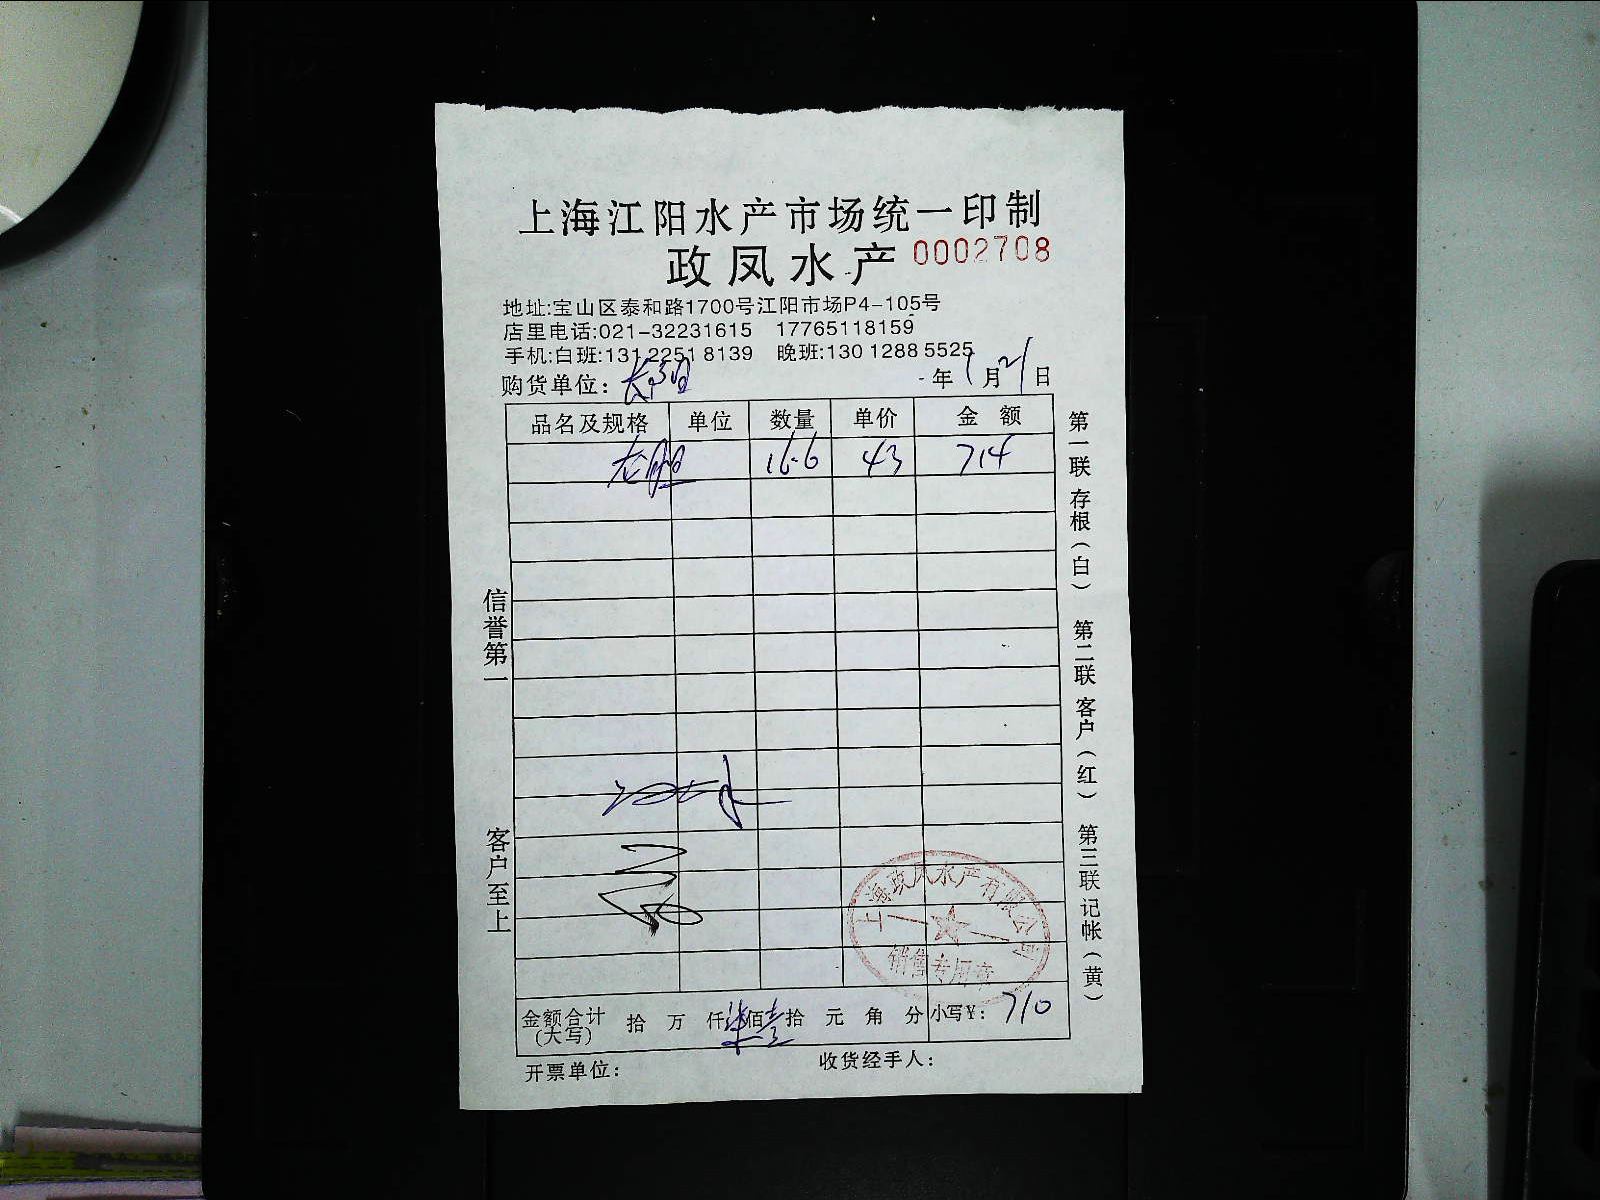 上海江阳水产市场统一印制
政凤水产 0002708
地址:宝山区泰和路1700号江阳市场P4-105号
店里电话:021-32231615 17765118159
手机:白班:131 2251 8139 晚班:130 1288 5525
购货单位: 年 1 月 21 日
品名及规格 单位 数量 单价 金额
龙胆 16.6 43 714
信誉第一
客户至上
第一联 存根(白) 第二联 客户(红) 第三联 记帐(黄)
上海政凤水产有限公司
销售专用章
金额合计 拾 万 仟 柒 佰 壹 拾 元 角 分 小写¥: 710
(大写)
开票单位: 收货经手人: